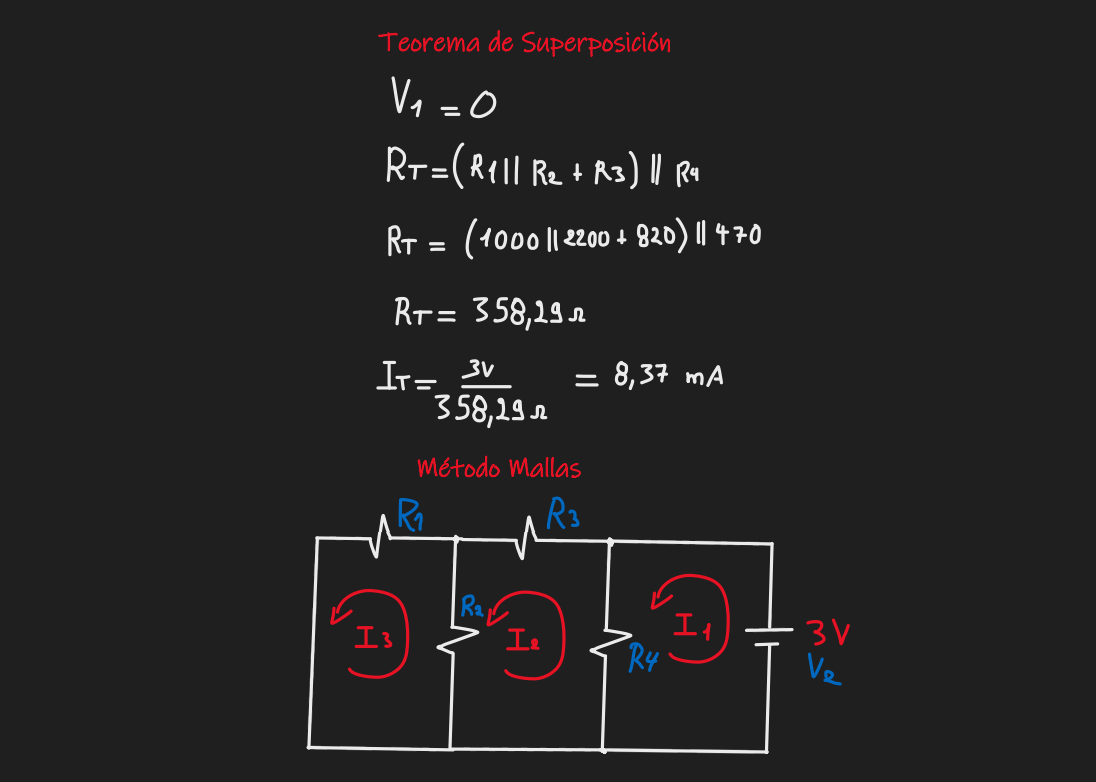 Teorema de Superposición
V1 = 0
RT = (R1 || R2 + R3) || R4
RT = (1000 || 2200 + 820) || 470
RT = 358,29 Ω
IT = 3V / 358,29 Ω = 8,37 mA
Método Mallas
R1 R3
R2
I3 I2 I1 3V
R4 V2